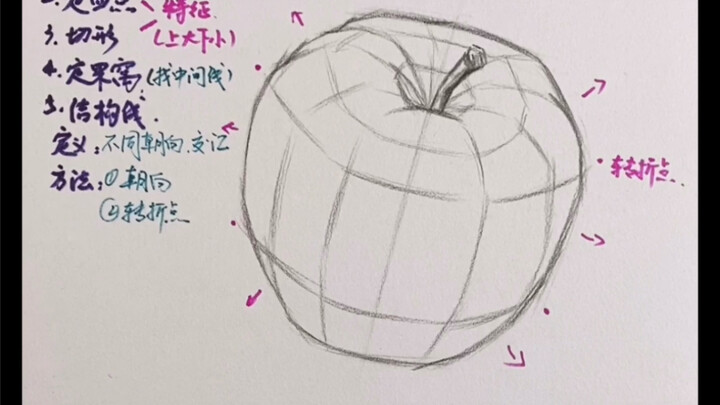 特征
3. 切形 (上大下小)
4. 定果窝 (找中间线)
5. 结构线.
定义: 不同朝向.交汇
方法: ①朝向
②转折点
转折点.